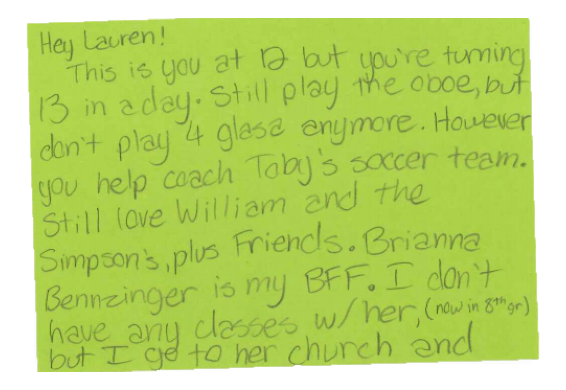 Hey Lauren!
This is you at 12 but you're turning
13 in a day. Still play the oboe, but
don't play 4 glasa anymore. However
you help coach Toby's soccer team.
Still love William and the
Simpson's, plus Friends. Brianna
Bennzinger is my BFF. I don't
have any classes w/ her, (now in 8th gr)
but I go to her church and